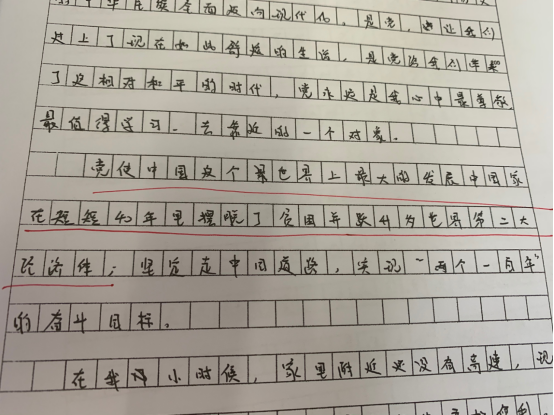 中华民族全面迈向现代化。是党,让我们
过上了现在如此舒适的生活,是党给我们带来
了这相对和平的时代,党永远是我心中最尊敬
最值得学习、去靠近的一个对象。
党使中国这个世界上最大的发展中国家
在短短40年里摆脱了贫困并跃升为世界第二大
经济体;坚定走中国道路,实现"两个一百年"
的奋斗目标。
在我小时候,家里附近还没有高速,现